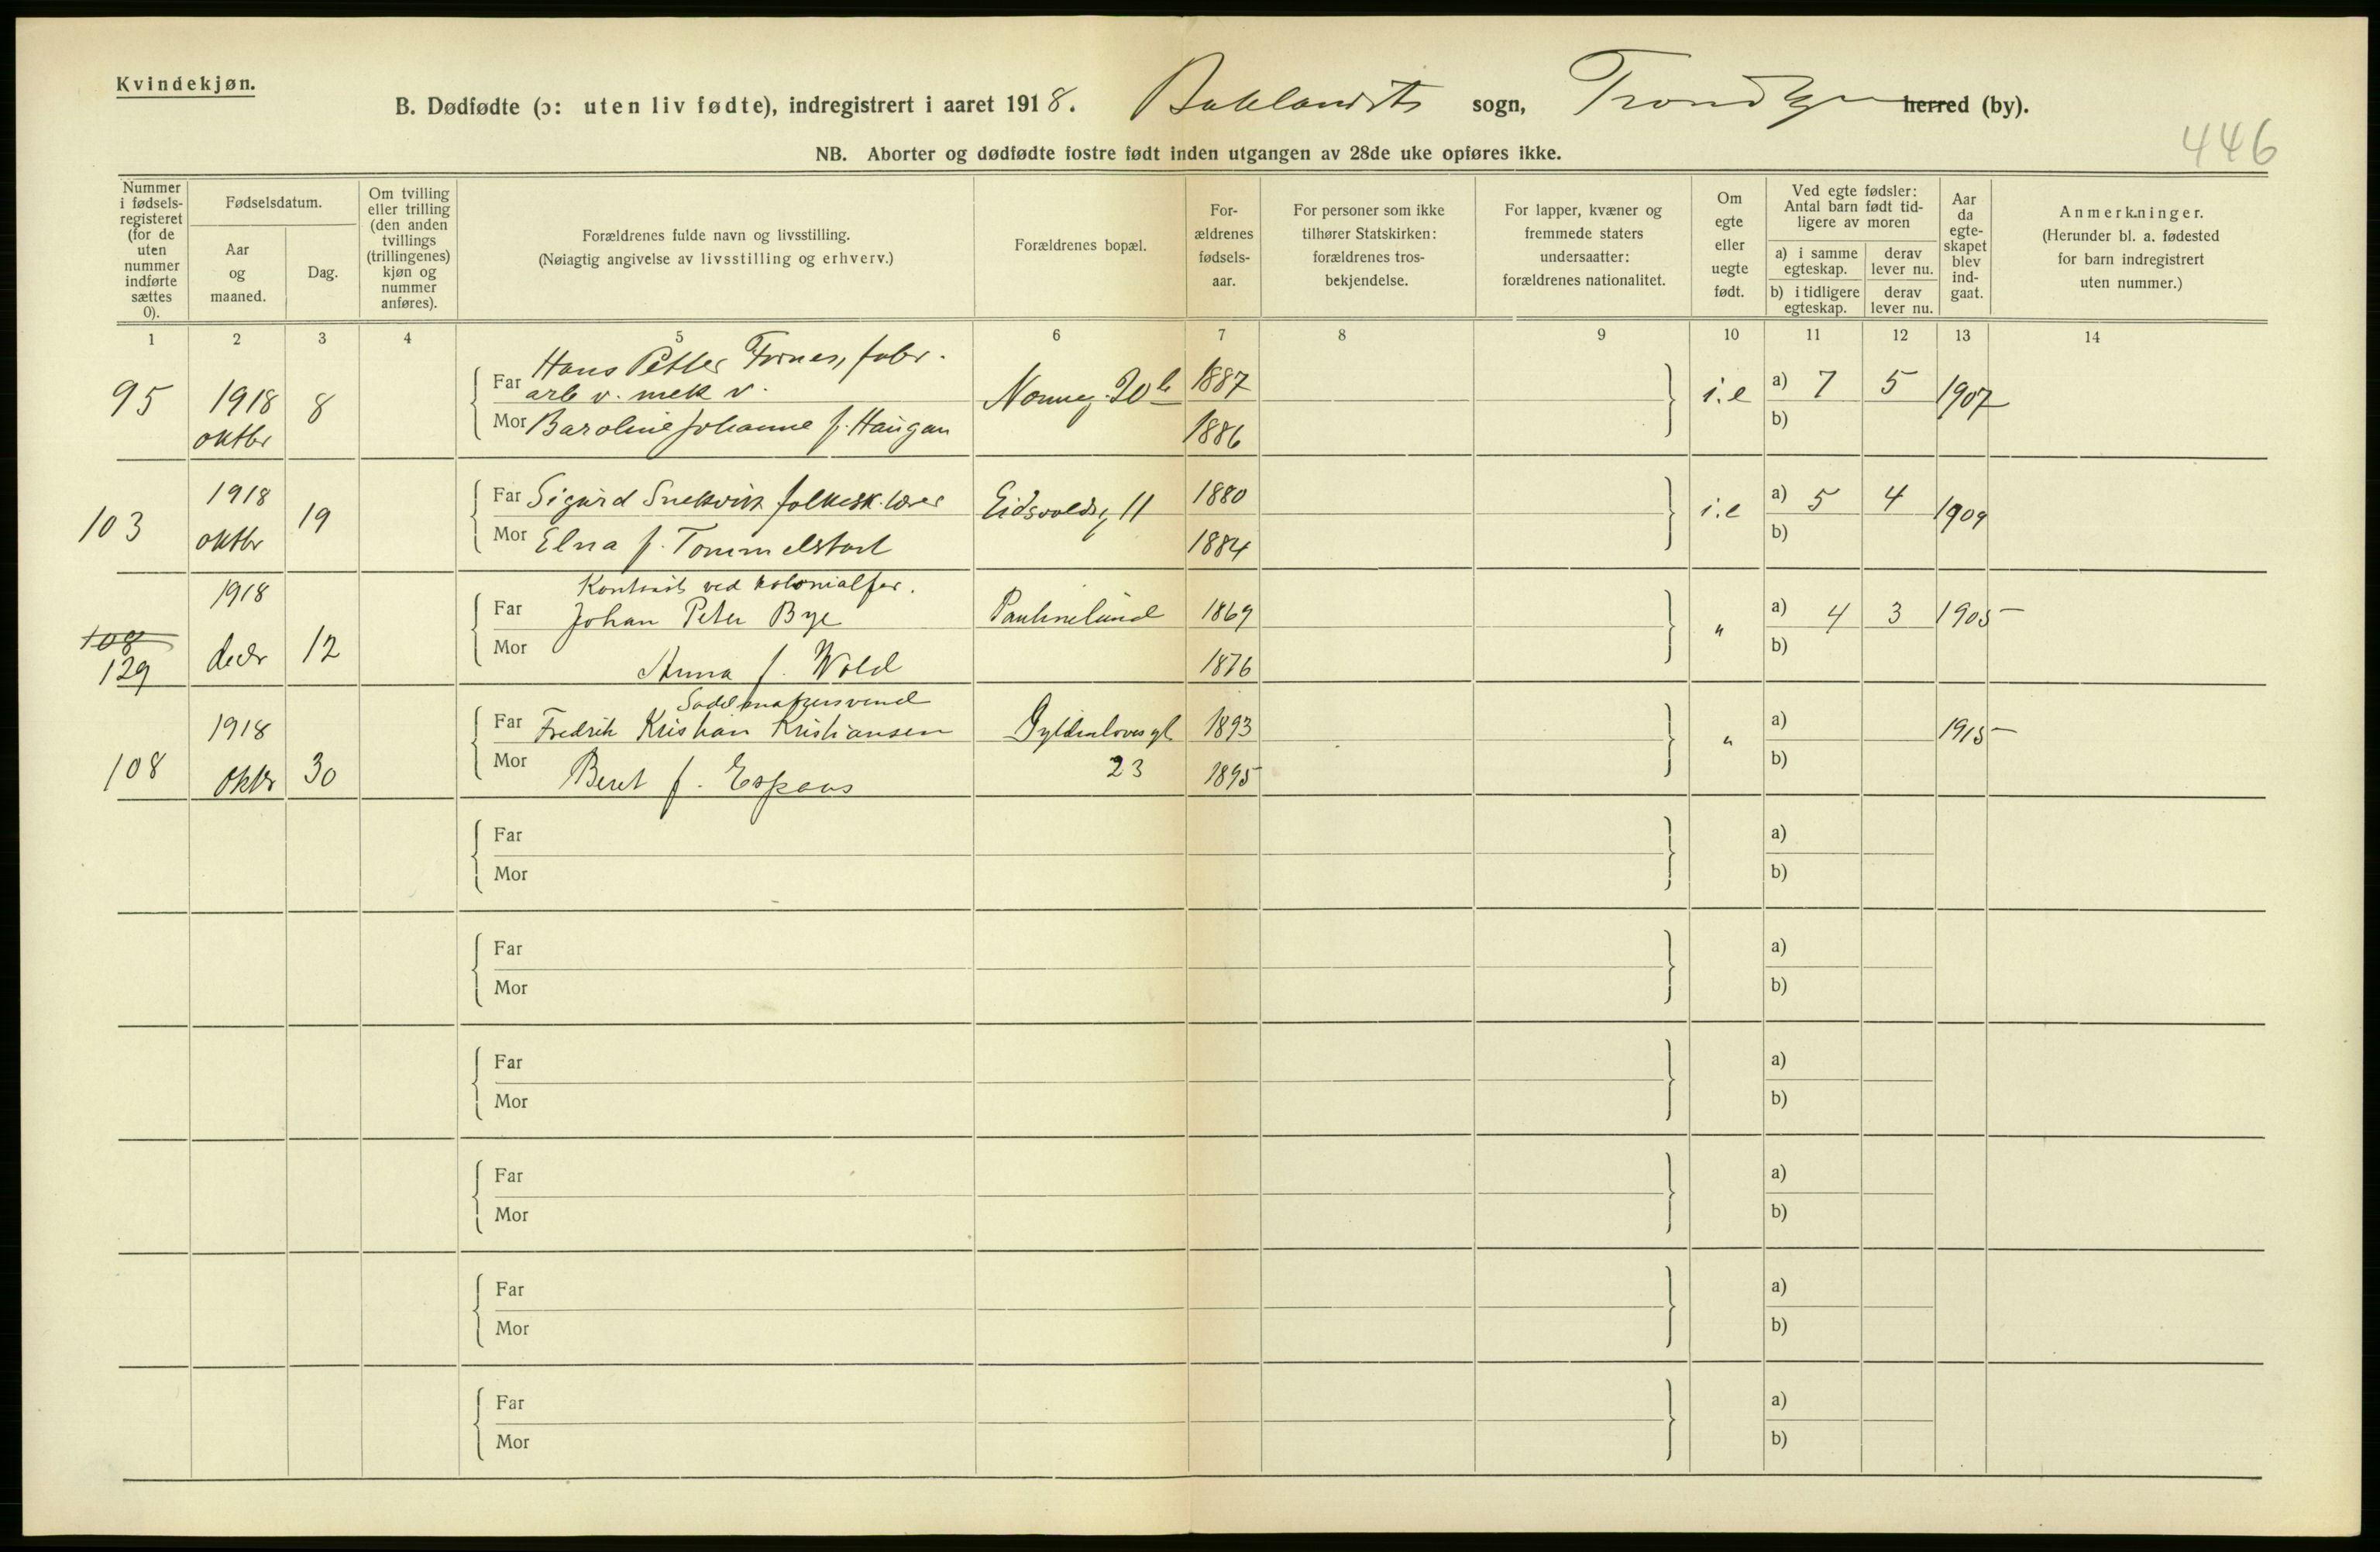 Kvindekjøn.
B. Dødfødte (ɔ: uten liv fødte), indregistrert i aaret 1918. Baklandets sogn, Trondhjem herred (by).
446
NB. Aborter og dødfødte fostre født inden utgangen av 28de uke opføres ikke.
Nummer i fødsels-registeret (for de uten nummer indførte sættes 0).
Fødselsdatum.
Aar og maaned.
Dag.
Om tvilling eller trilling (den anden tvillings (trillingenes) kjøn og nummer anføres).
Forældrenes fulde navn og livsstilling.
(Nøiagtig angivelse av livsstilling og erhverv.)
Forældrenes bopæl.
For-ældrenes fødsels-aar.
For personer som ikke tilhører Statskirken: forældrenes tros-bekjendelse.
For lapper, kvæner og fremmede staters undersaatter: forældrenes nationalitet.
Om egte eller uegte født.
Ved egte fødsler: Antal barn født tid-ligere av moren
a) i samme egteskap.
derav lever nu.
b) i tidligere egteskap.
derav lever nu.
Aar da egte-skapet blev ind-gaat.
Anmerkninger.
(Herunder bl. a. fødested for barn indregistrert uten nummer.)
1 2 3 4 5 6 7 8 9 10 11 12 13 14
95 1918 oktbr 8
Far Hans Petter Fornes, fabr.
arb v. mek v.
Nonneg. 20 b 1887 i.e a) 7 5 1907
Mor Baroline Johanne f. Haugan 1886 b)
103 1918 oktbr 19
Far Sigurd Snekvik folkesk. lærer Eidsvoldsg 11 1880 i.e a) 5 4 1909
Mor Elna f. Tommelstad 1884 b)
108
129 1918 decbr 12
Kontorist ved kolonialfor.
Far Johan Peter Bye Paulinelund 1869 " a) 4 3 1905
Mor Anna f. Wold 1876 b)
108 1918 oktbr 30
Sadelmakersvend
Far Fredrik Kristian Kristiansen Gyldenløvesgt 1893 " a) 1915
Mor Beret f. Espaas 23 1895 b)
Far a)
Mor b)
Far a)
Mor b)
Far a)
Mor b)
Far a)
Mor b)
Far a)
Mor b)
Far a)
Mor b)